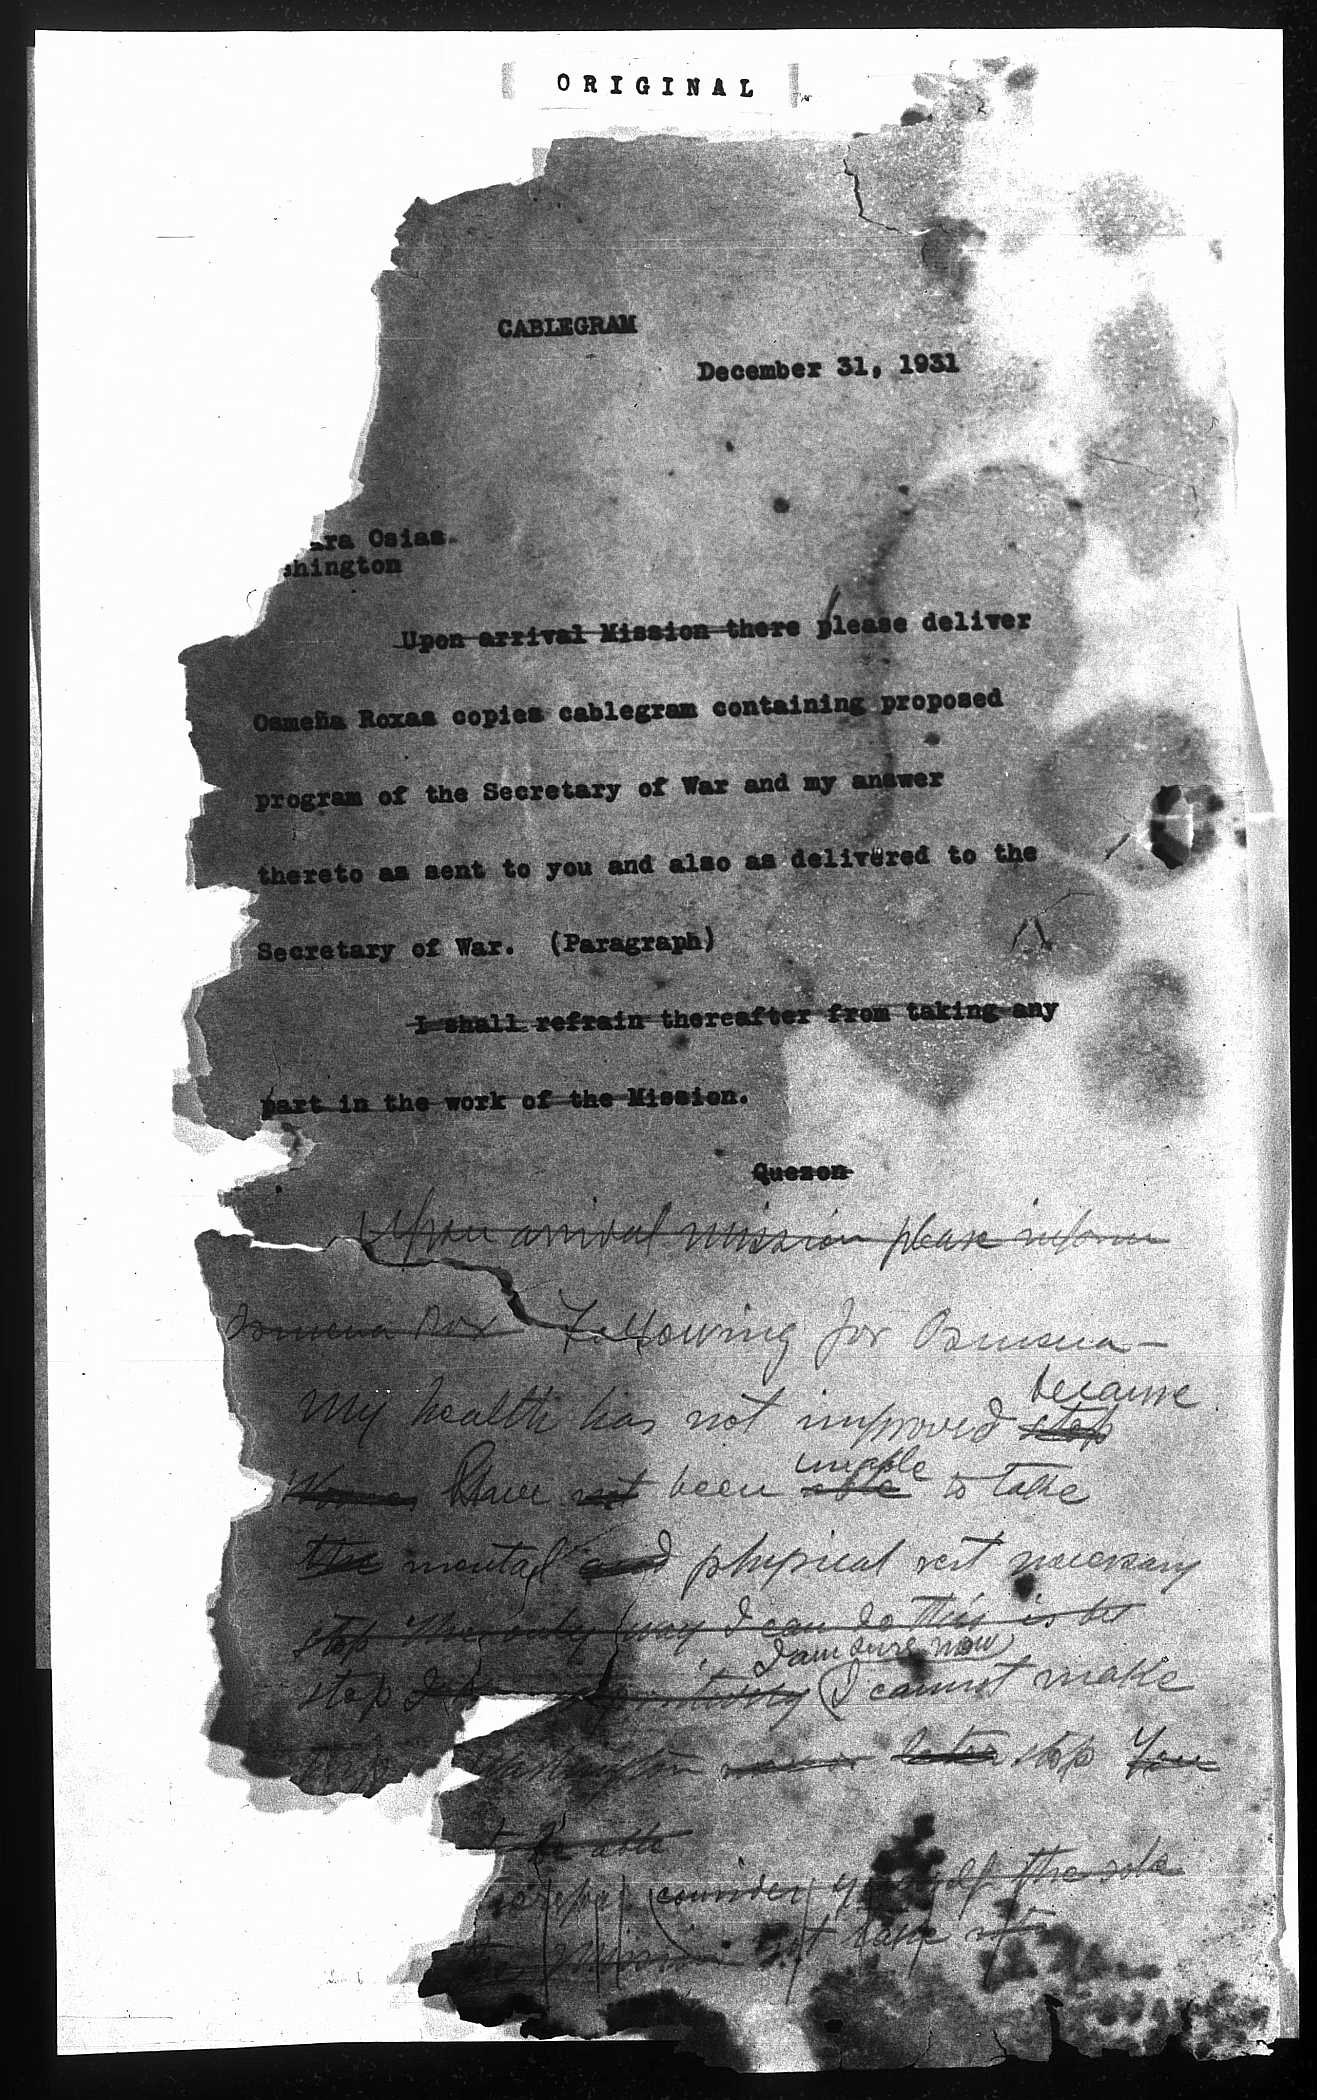 ORIGINAL
CABLEGRAM
December 31, 1931
ara Osias.
shington
Upon arrival Mission there please deliver
Osmeña Roxas copies cablegram containing proposed
program of the Secretary of War and my answer
thereto as sent to you and also as delivered to the
Secretary of War. (Paragraph)
I shall refrain thereafter from taking any
part in the work of the Mission.
Quezon
Upon arrival mission please inform
Osmena Rox Following for Osmena—
because
My health has not improved stop
unable
have not been able to take
the mental and physical rest necessary
stop The only way I can do this is
I am sure now
stop I cannot make
Washington later stop You
be able
consider yourself the sole
the Mission but take